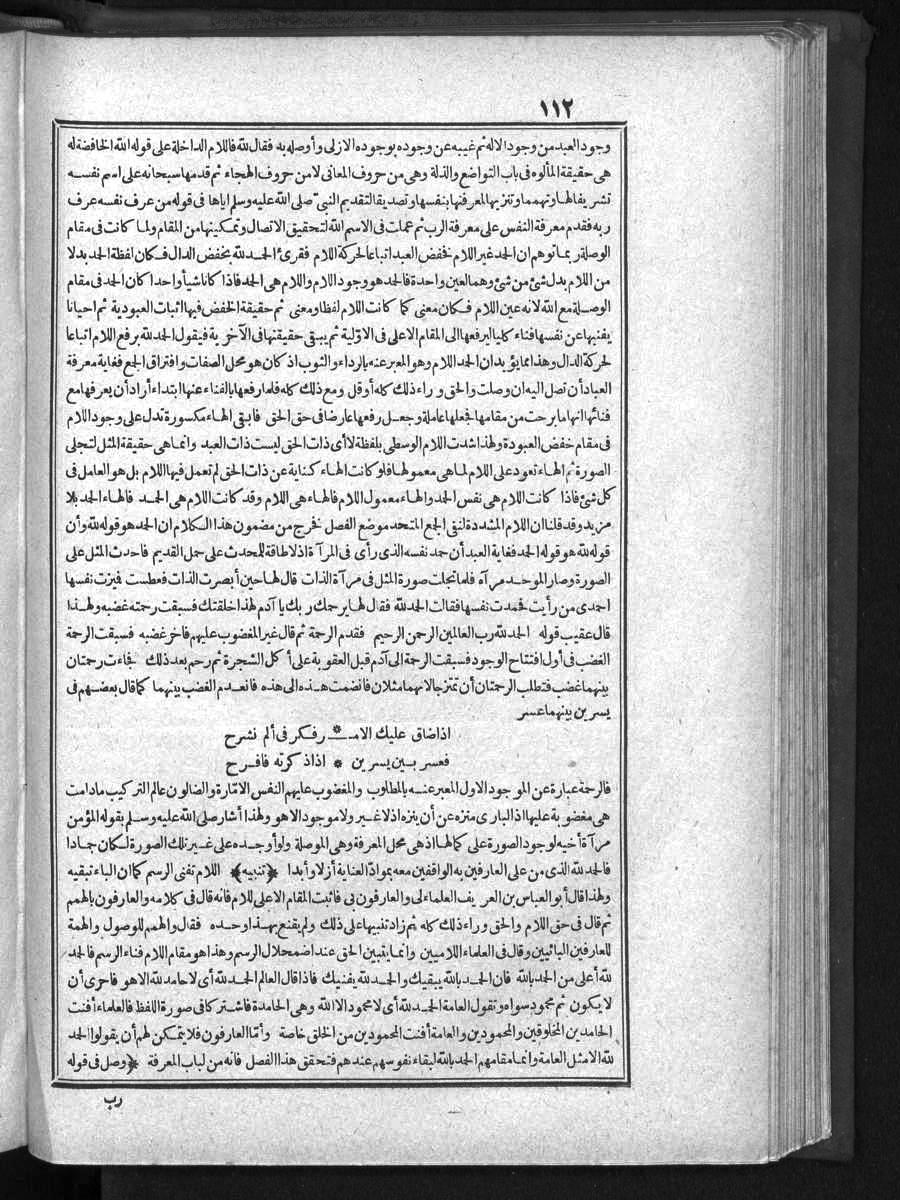 ١١٢
وجود العبد من وجود الاله ثم غيبه عن وجوده بوجوده الازلى وأوصله به فقال لله فاللام الداخلة على قوله الله الخافضة له
هى حقيقة المألوه فى باب التواضع والذلة وهى من حروف المعانى لا من حروف الهجاء ثم قدمها سبحانه على اسم نفسه
تشريفا لها وتهمما وتنزيها لمعرفتها بنفسها وتصديقا لتقديم النبى صلى الله عليه وسلم اياها فى قوله من عرف نفسه عرف
ربه فقدم معرفة النفس على معرفة الرب ثم عملت فى الاسم الله لتحقيق الاتصال وتمكينها من المقام ولما كانت فى مقام
الوصلة ربما توهم ان الحمد غير اللام فخفض العبد اتباعا لحركة اللام فقرئ الحمد لله بخفض الدال فكان لفظة الحمد بدلا
من اللام بدل شئ من شئ وهما لعين واحدة فالحمد هو وجود اللام واللام هى الحمد فاذا كانا شيأ واحدا كان الحمد فى مقام
الوصلة مع الله لانه عين اللام فكان معنى كما كانت اللام لفظا ومعنى ثم حقيقة الخفض فيها اثبات العبودية ثم احيانا
يفنيها عن نفسها فناء كليا ليرفعها الى المقام الاعلى فى الاوّلية ثم يبقى حقيقتها فى الآخرية فيقول الحمد لله برفع اللام اتباعا
لحركة الدال وهذا مما يؤيد ان الحمد اللام وهو المعبر عنه بالرداء والثوب اذ كان هو محل الصفات وافتراق الجمع فغاية معرفة
العباد أن تصل اليه ان وصلت والحق وراء ذلك كله أو قل ومع ذلك كله فلما رفعها بالفناء عنها ابتداء أراد أن يعرفها مع
فنائها انها ما برحت من مقامها فجعلها عاملة وجعل رفعها عارضا فى حق الحق فابقى الهاء مكسورة تدل على وجود اللام
فى مقام خفض العبودة ولهذا شدت اللام الوسطى بلفظة لا أى ذات الحق ليست ذات العبد وانما هى حقيقة المثل لتجلى
الصورة ثم الهاء تعود على اللام لما هى معمول لها فلو كانت الهاء كناية عن ذات الحق لم تعمل فيها اللام بل هو العامل فى
كل شئ فاذا كانت اللام هى نفس الحمد والهاء معمول اللام فالهاء هى اللام وقد كانت اللام هى الحمد فالهاء الحمد بلا
مزيد وقد قلنا ان اللام المشددة لنفى الجمع المتحد موضع الفصل فخرج من مضمون هذا الكلام ان الحمد هو قوله لله وأن
قوله لله هو قوله الحمد فغاية العبد أن حمد نفسه الذى رأى فى المرآة اذ لا طاقة للمحدث على حمل القديم فاحدث المثل على
الصورة وصار الموحد مرآه فلما تجلت صورة المثل فى مرآة الذات قال لها حين أبصرت الذات فعطست فميزت نفسها
احمدى من رأيت فحمدت نفسها فقالت الحمد لله فقال لها يرحمك ربك يا آدم لهذا خلقتك فسبقت رحمته غضبه ولهذا
قال عقيب قوله الحمد لله رب العالمين الرحمن الرحيم فقدم الرحمة ثم قال غير المغضوب عليهم فاخر غضبه فسبقت الرحمة
الغضب فى أول افتتاح الوجود فسبقت الرحمة الى آدم قبل العقوبة على أكل الشجرة ثم رحم بعد ذلك فجاءت رحمتان
بينهما غضب فتطلب الرحمتان أن تمتزجا لانهما مثلان فانضمت هذه الى هذه فانعدم الغضب بينهما كما قال بعضهم فى
يسرين بينهما عسر
اذا ضاق عليك الامـ * ـر فكر فى ألم نشرح
فعسر بين يسرين * اذا ذكرته فافرح
فالرحمة عبارة عن الموجود الاول المعبر عنه بالمطلوب والمغضوب عليهم النفس الامّارة والضالون عالم التركيب مادامت
هى مغضوبة عليها اذ البارى منزه عن أن ينزه اذ لا غير ولا موجود الا هو ولهذا أشار صلى الله عليه وسلم بقوله المؤمن
مرآة أخيه لوجود الصورة على كمالها اذ هى محل المعرفة وهى الموصلة ولو أوجده على غير تلك الصورة لكان جمادا
فالحمد لله الذى من على العارفين به الواقفين معه بموادّ العناية أزلا وأبدا ﴿تنبيه﴾ اللام تفنى الرسم كما ان الباء تبقيه
ولهذا قال أبو العباس بن العريف العلماء لى والعارفون بى فاثبت المقام الاعلى للام فانه قال فى كلامه والعارفون بالهمم
ثم قال فى حق اللام والحق وراء ذلك كله ثم زاد تنبيها على ذلك ولم يقنع بهذا وحده فقال والهمم للوصول والهمة
للعارفين البائيين وقال فى العلماء اللاميين وانما يتبين الحق عند اضمحلال الرسم وهذا هو مقام اللام فناء الرسم فالحمد
لله أعلى من الحمد بالله فان الحمد بالله يبقيك والحمد لله يفنيك فاذا قال العالم الحمد لله أى لا حامد لله الا هو فاحرى أن
لا يكون ثم محمود سواه وتقول العامة الحمد لله أى لا محمود الا الله وهى الحامدة فاشتركا فى صورة اللفظ فالعلماء أفنت
الحامدين المخلوقين والمحمودين والعامة أفنت المحمودين من الخلق خاصة وأمّا العارفون فلا يتمكن لهم أن يقولوا الحمد
لله الا مثل العامة وانما مقامهم الحمد بالله لبقاء نفوسهم عندهم فتحقق هذا الفصل فانه من لباب المعرفة ﴿وصل فى قوله
رب